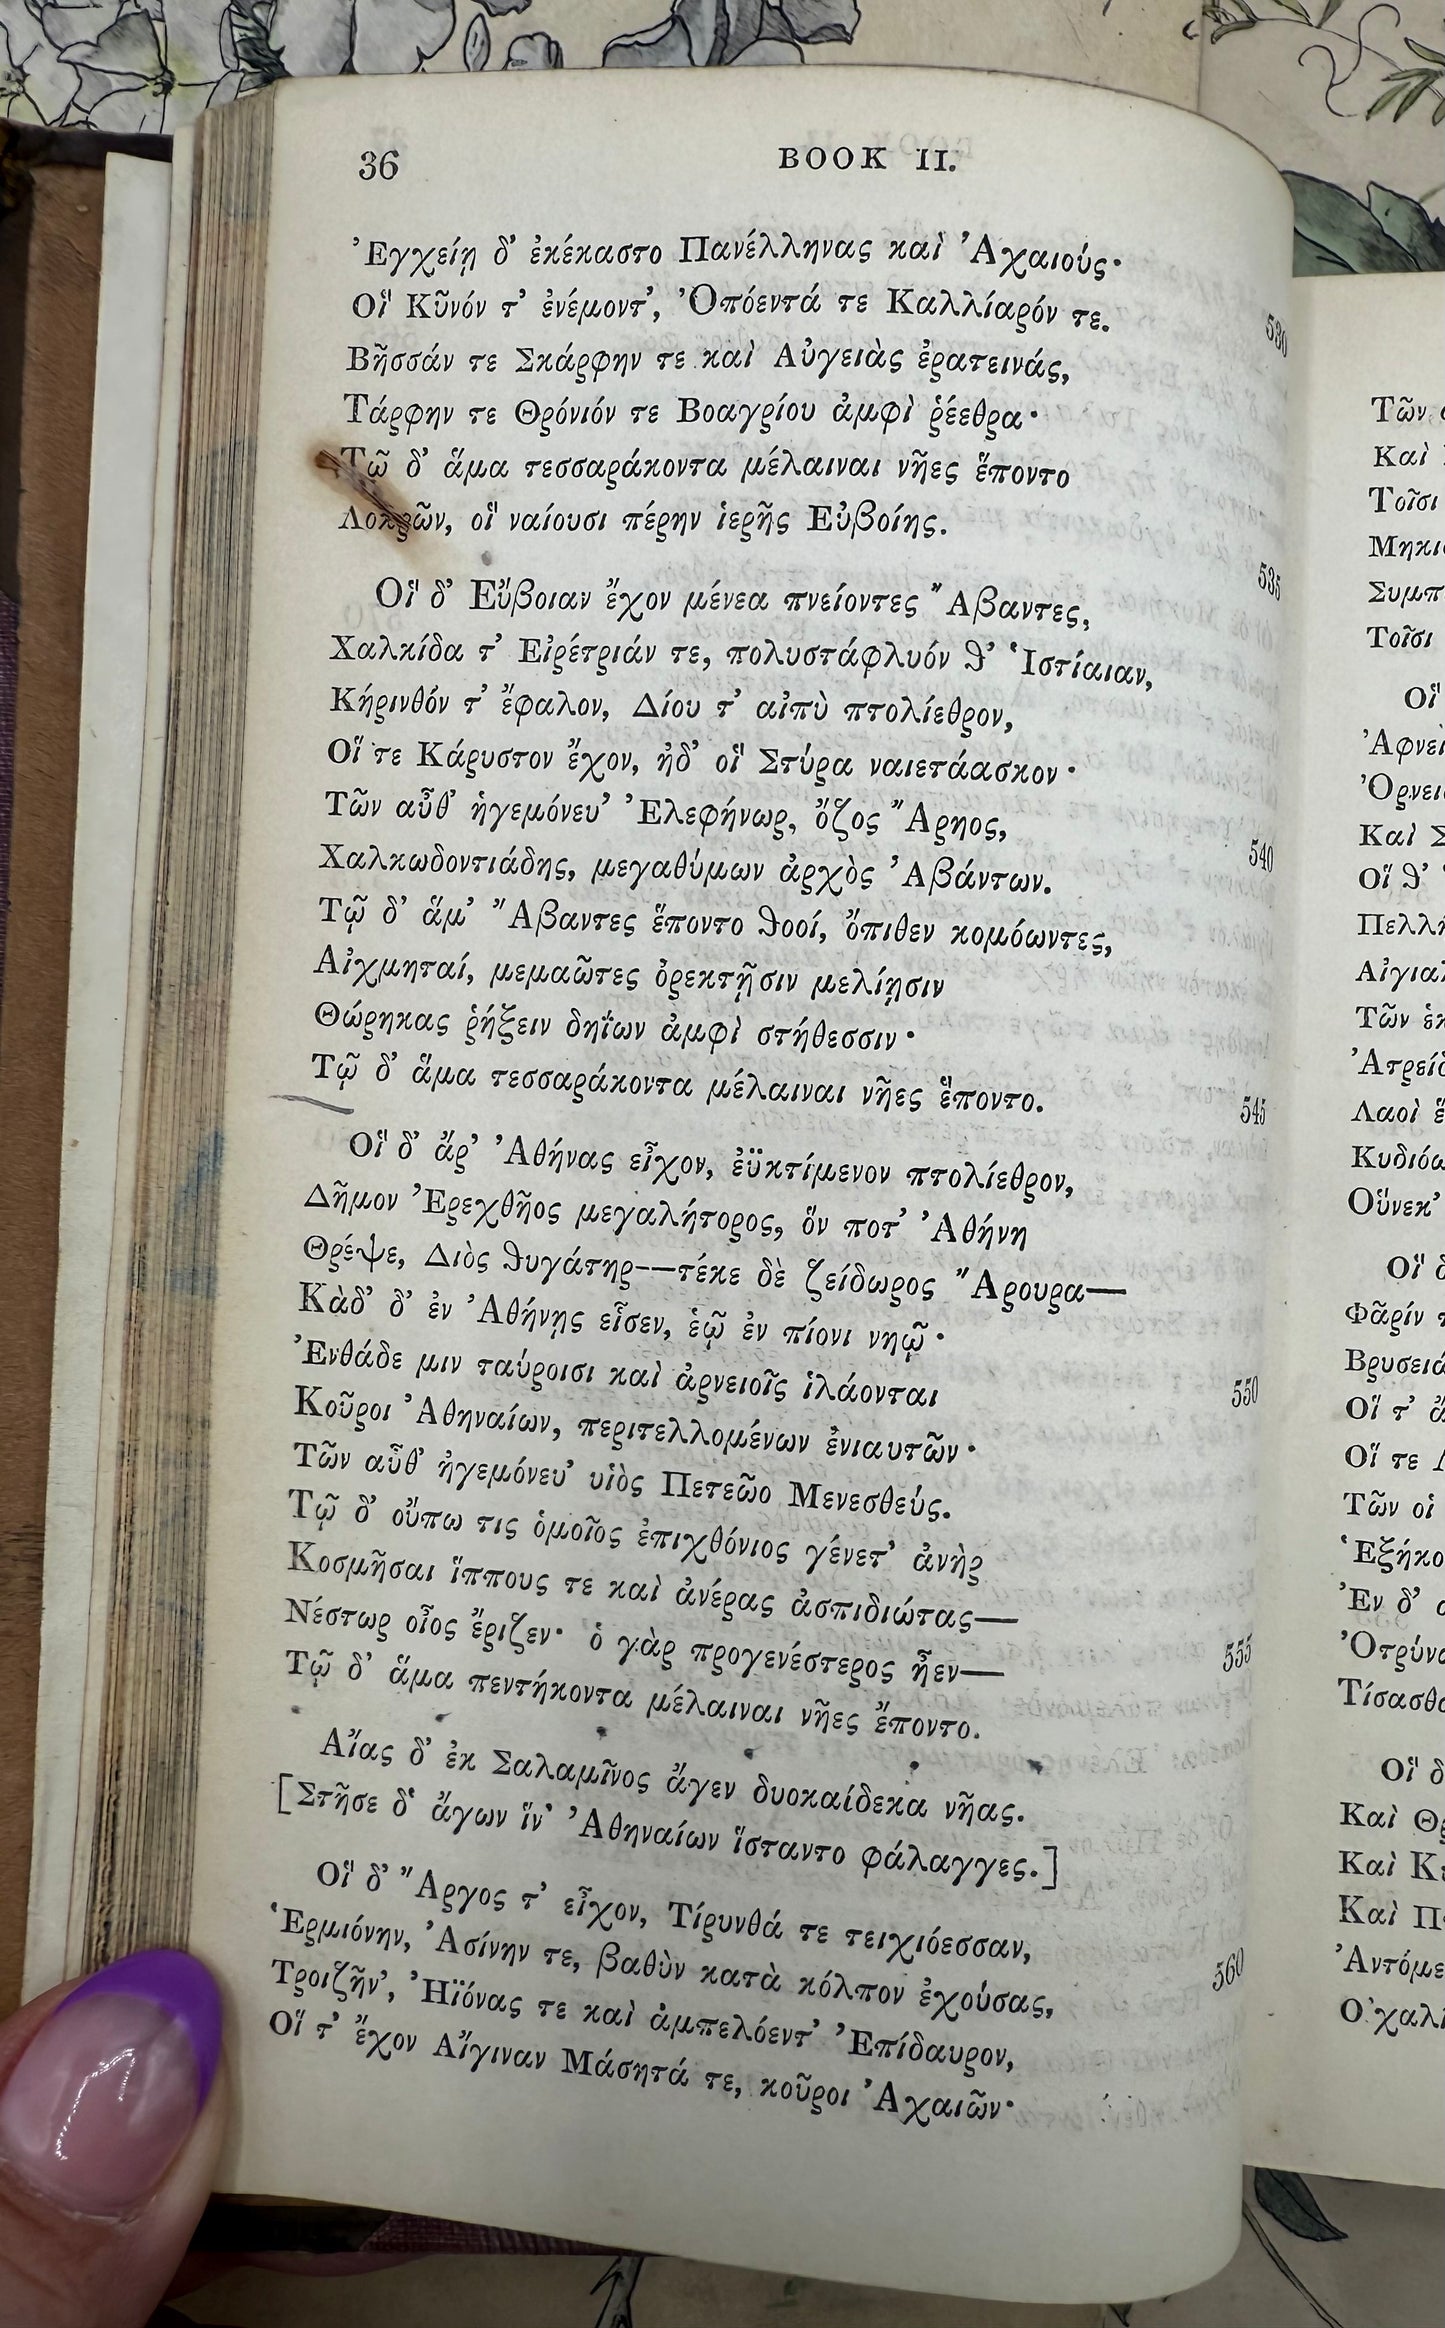 36
BOOK II.
Ἐγχείῃ δ' ἐκέκαστο Πανέλληνας καὶ Ἀχαιούς·
Οἳ Κῦνόν τ' ἐνέμοντ', Ὀπόεντά τε Καλλίαρόν τε. 530
Βῆσσάν τε Σκάρφην τε καὶ Αὐγειὰς ἐρατεινάς,
Τάρφην τε Θρόνιόν τε Βοαγρίου ἀμφὶ ῥέεθρα·
Τῶ δ' ἅμα τεσσαράκοντα μέλαιναι νῆες ἕποντο
Λοκρῶν, οἳ ναίουσι πέρην ἱερῆς Εὐβοίης.
Οἳ δ' Εὔβοιαν ἔχον μένεα πνείοντες Ἄβαντες, 535
Χαλκίδα τ' Εἰρέτριάν τε, πολυστάφλυόν θ' Ἱστίαιαν,
Κήρινθόν τ' ἔφαλον, Δίου τ' αἰπὺ πτολίεθρον,
Οἵ τε Κάρυστον ἔχον, ἠδ' οἳ Στύρα ναιετάασκον·
Τῶν αὖθ' ἡγεμόνευ' Ἐλεφήνωρ, ὄζος Ἄρηος,
Χαλκωδοντιάδης, μεγαθύμων ἀρχὸς Ἀβάντων. 540
Τῷ δ' ἅμ' Ἄβαντες ἕποντο θοοί, ὄπιθεν κομόωντες,
Αἰχμηταί, μεμαῶτες ὀρεκτῇσιν μελίῃσιν
Θώρηκας ῥήξειν δηΐων ἀμφὶ στήθεσσιν·
Τῷ δ' ἅμα τεσσαράκοντα μέλαιναι νῆες ἕποντο. 545
Οἳ δ' ἄρ' Ἀθήνας εἶχον, ἐϋκτίμενον πτολίεθρον,
Δῆμον Ἐρεχθῆος μεγαλήτορος, ὅν ποτ' Ἀθήνη
Θρέψε, Διὸς θυγάτηρ—τέκε δὲ ζείδωρος Ἄρουρα—
Κὰδ' δ' ἐν Ἀθήνῃς εἷσεν, ἑῷ ἐν πίονι νηῷ·
Ἐνθάδε μιν ταύροισι καὶ ἀρνειοῖς ἱλάονται 550
Κοῦροι Ἀθηναίων, περιτελλομένων ἐνιαυτῶν·
Τῶν αὖθ' ἡγεμόνευ' υἱὸς Πετεῶο Μενεσθεύς.
Τῷ δ' οὔπω τις ὁμοῖος ἐπιχθόνιος γένετ' ἀνὴρ
Κοσμῆσαι ἵππους τε καὶ ἀνέρας ἀσπιδιώτας—
Νέστωρ οἶος ἔριζεν· ὁ γὰρ προγενέστερος ἦεν— 555
Τῷ δ' ἅμα πεντήκοντα μέλαιναι νῆες ἕποντο.
Αἴας δ' ἐκ Σαλαμῖνος ἄγεν δυοκαίδεκα νῆας.
[Στῆσε δ' ἄγων ἵν' Ἀθηναίων ἵσταντο φάλαγγες.]
Οἳ δ' Ἄργος τ' εἶχον, Τίρυνθά τε τειχιόεσσαν,
Ἑρμιόνην, Ἀσίνην τε, βαθὺν κατὰ κόλπον ἐχούσας, 560
Τροιζῆν', Ἠϊόνας τε καὶ ἀμπελόεντ' Ἐπίδαυρον,
Οἵ τ' ἔχον Αἴγιναν Μάσητά τε, κοῦροι Ἀχαιῶν·
Τῶν
Καὶ
Τοῖσι
Τοῖσι
Οἳ
Καὶ Σ
Οἵ θ'
Τῶν
Λαοὶ
Οὕνεκ'
Οἳ
Οἵ τ'
Οἵ τε
Τῶν οἱ
Ἐν δ'
Οἳ δ
Καὶ
Καὶ
Καὶ